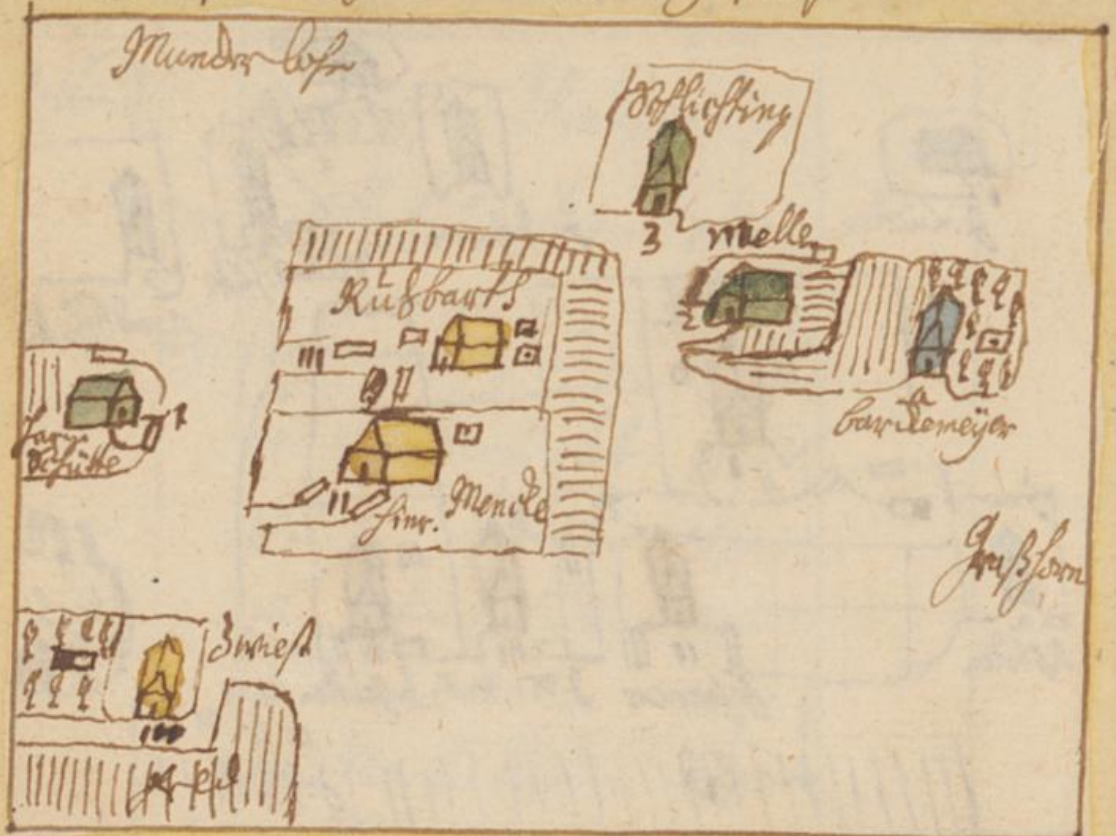 Munderloh
Schlichting
3
Mueller
2
Rußbarth
barckemeÿer
1
Schütte
hinr. Mencke
Graßhorn
Zwiest